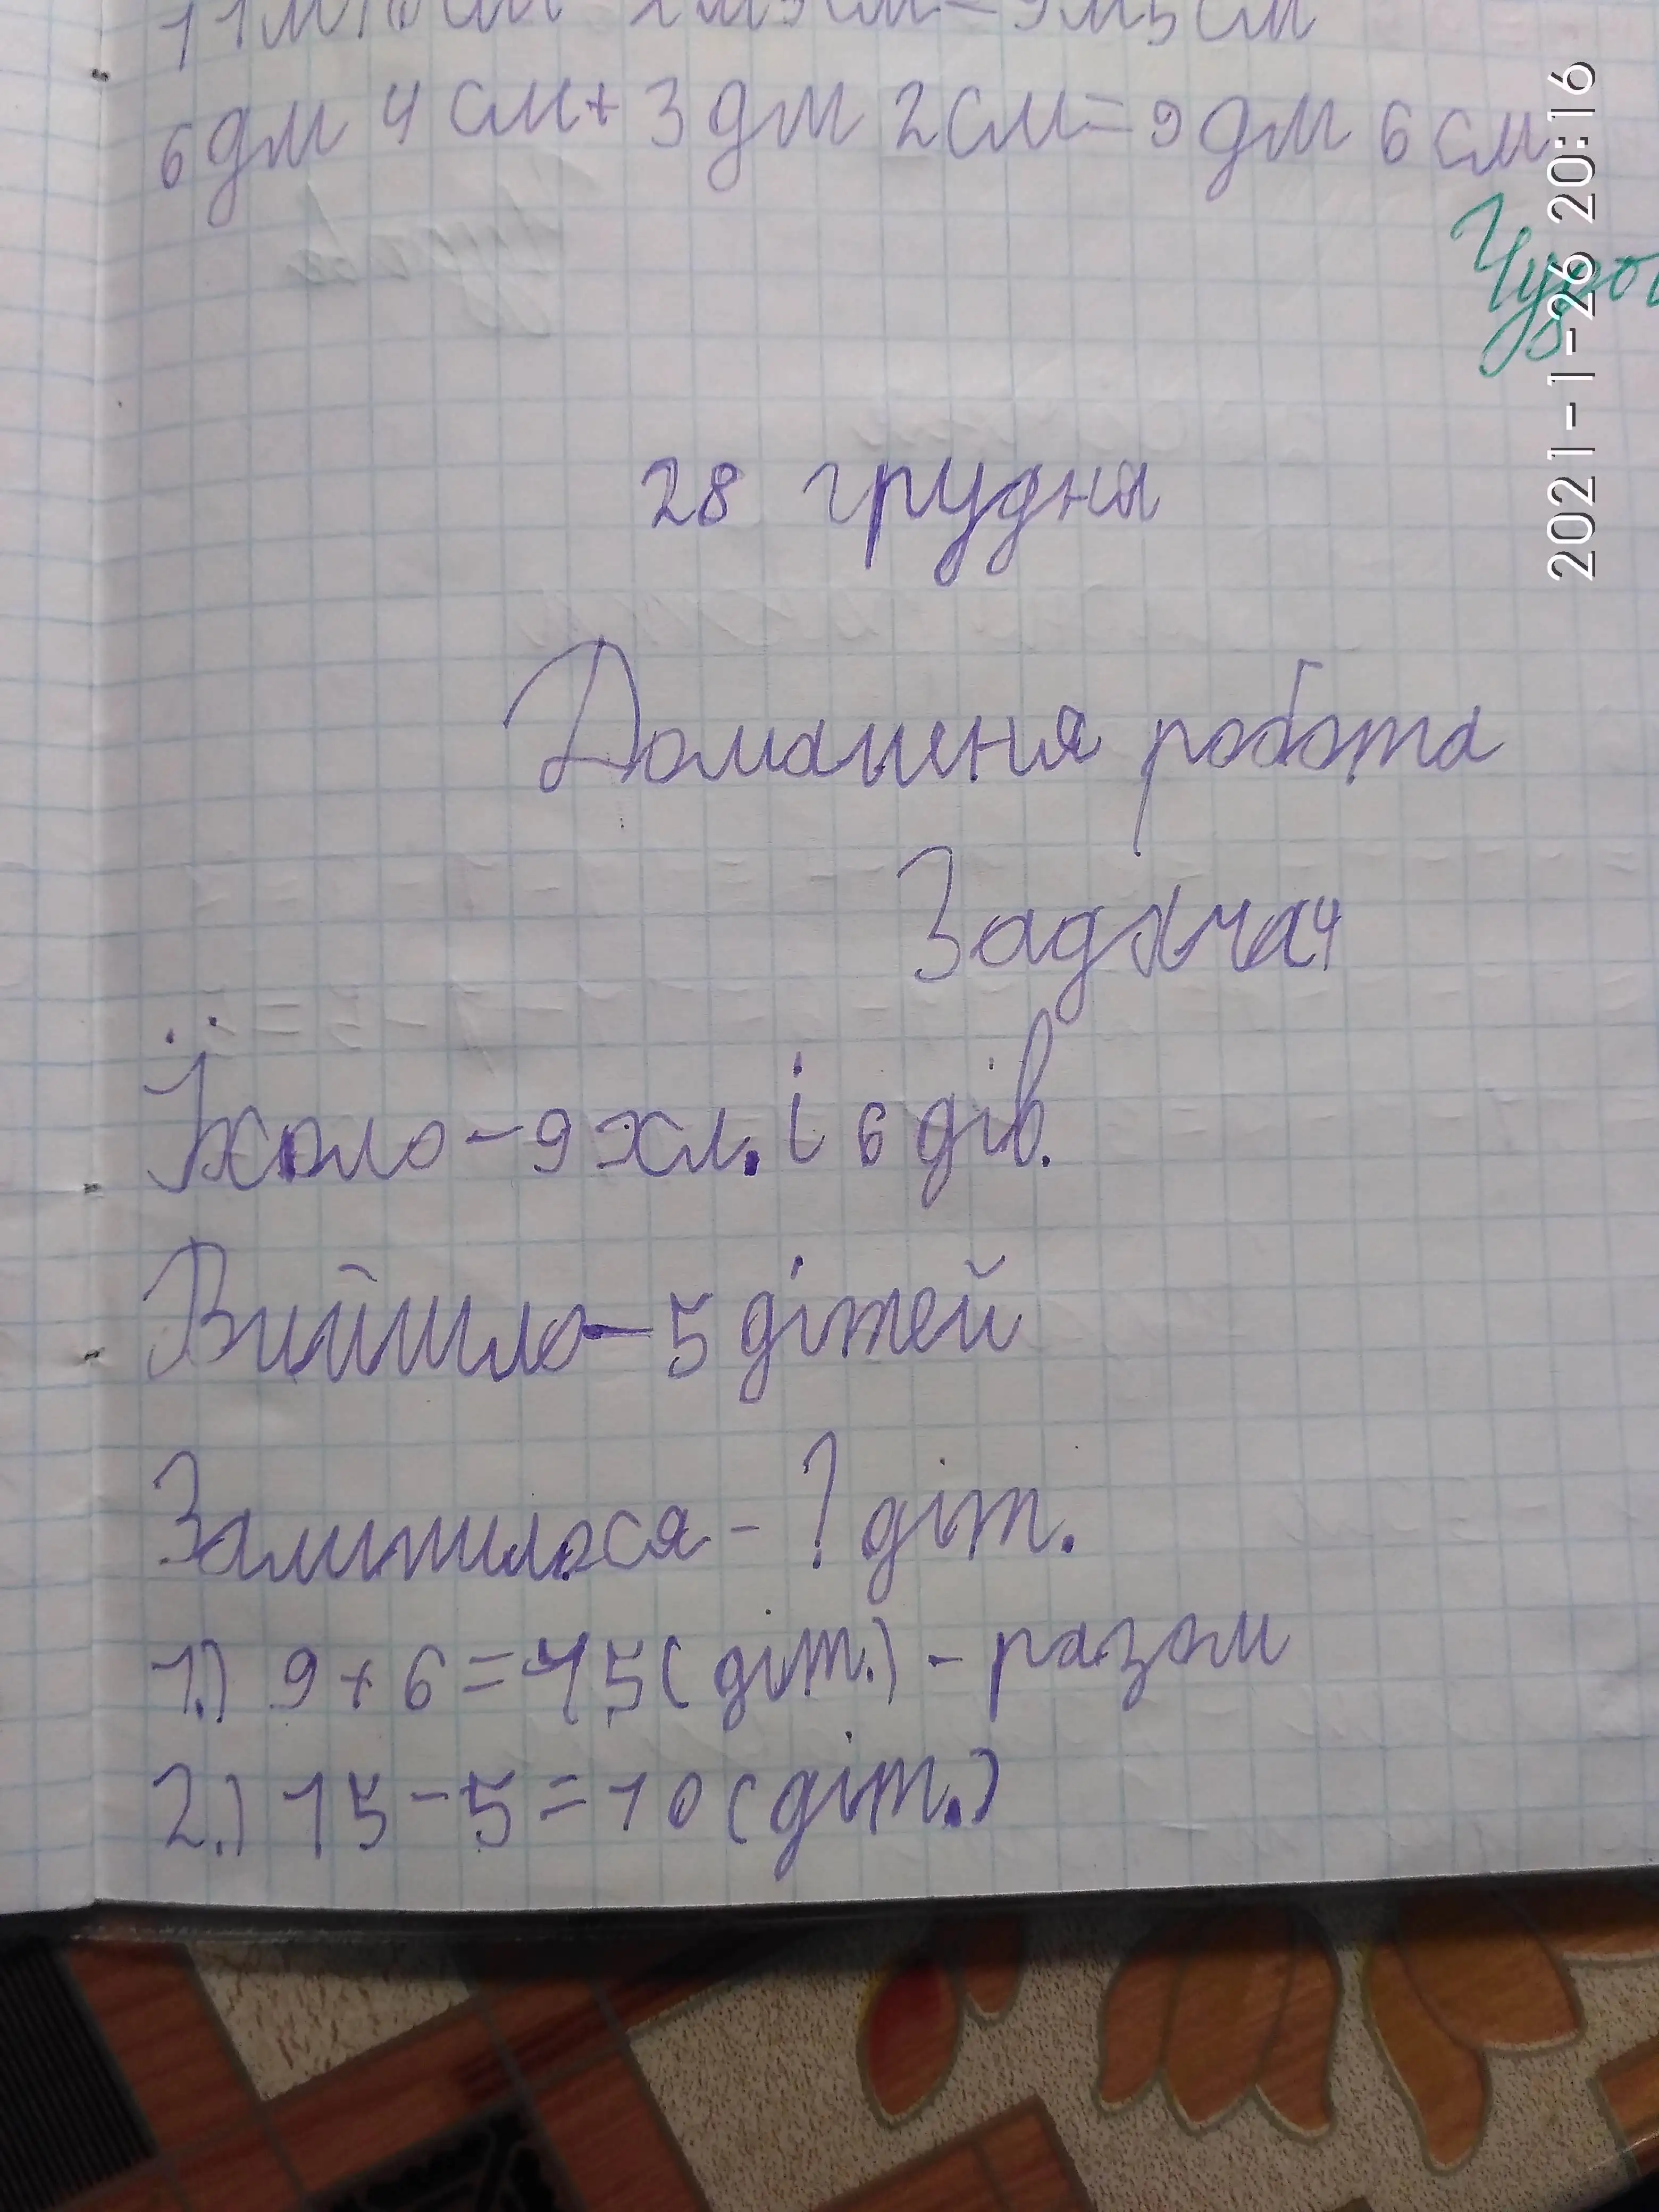 6 дм 4 см + 3 дм 2 см = 9 дм 6 см
2021-1-26 20:16
28 грудня
Домашеня робота
Задача 4
Їхало - 9 хл. і 6 дів.
Вийшло - 5 дітей
Залишилося - ? діт.
1.) 9 + 6 = 15 (діт.) - разом
2.) 15 - 5 = 10 (діт.)